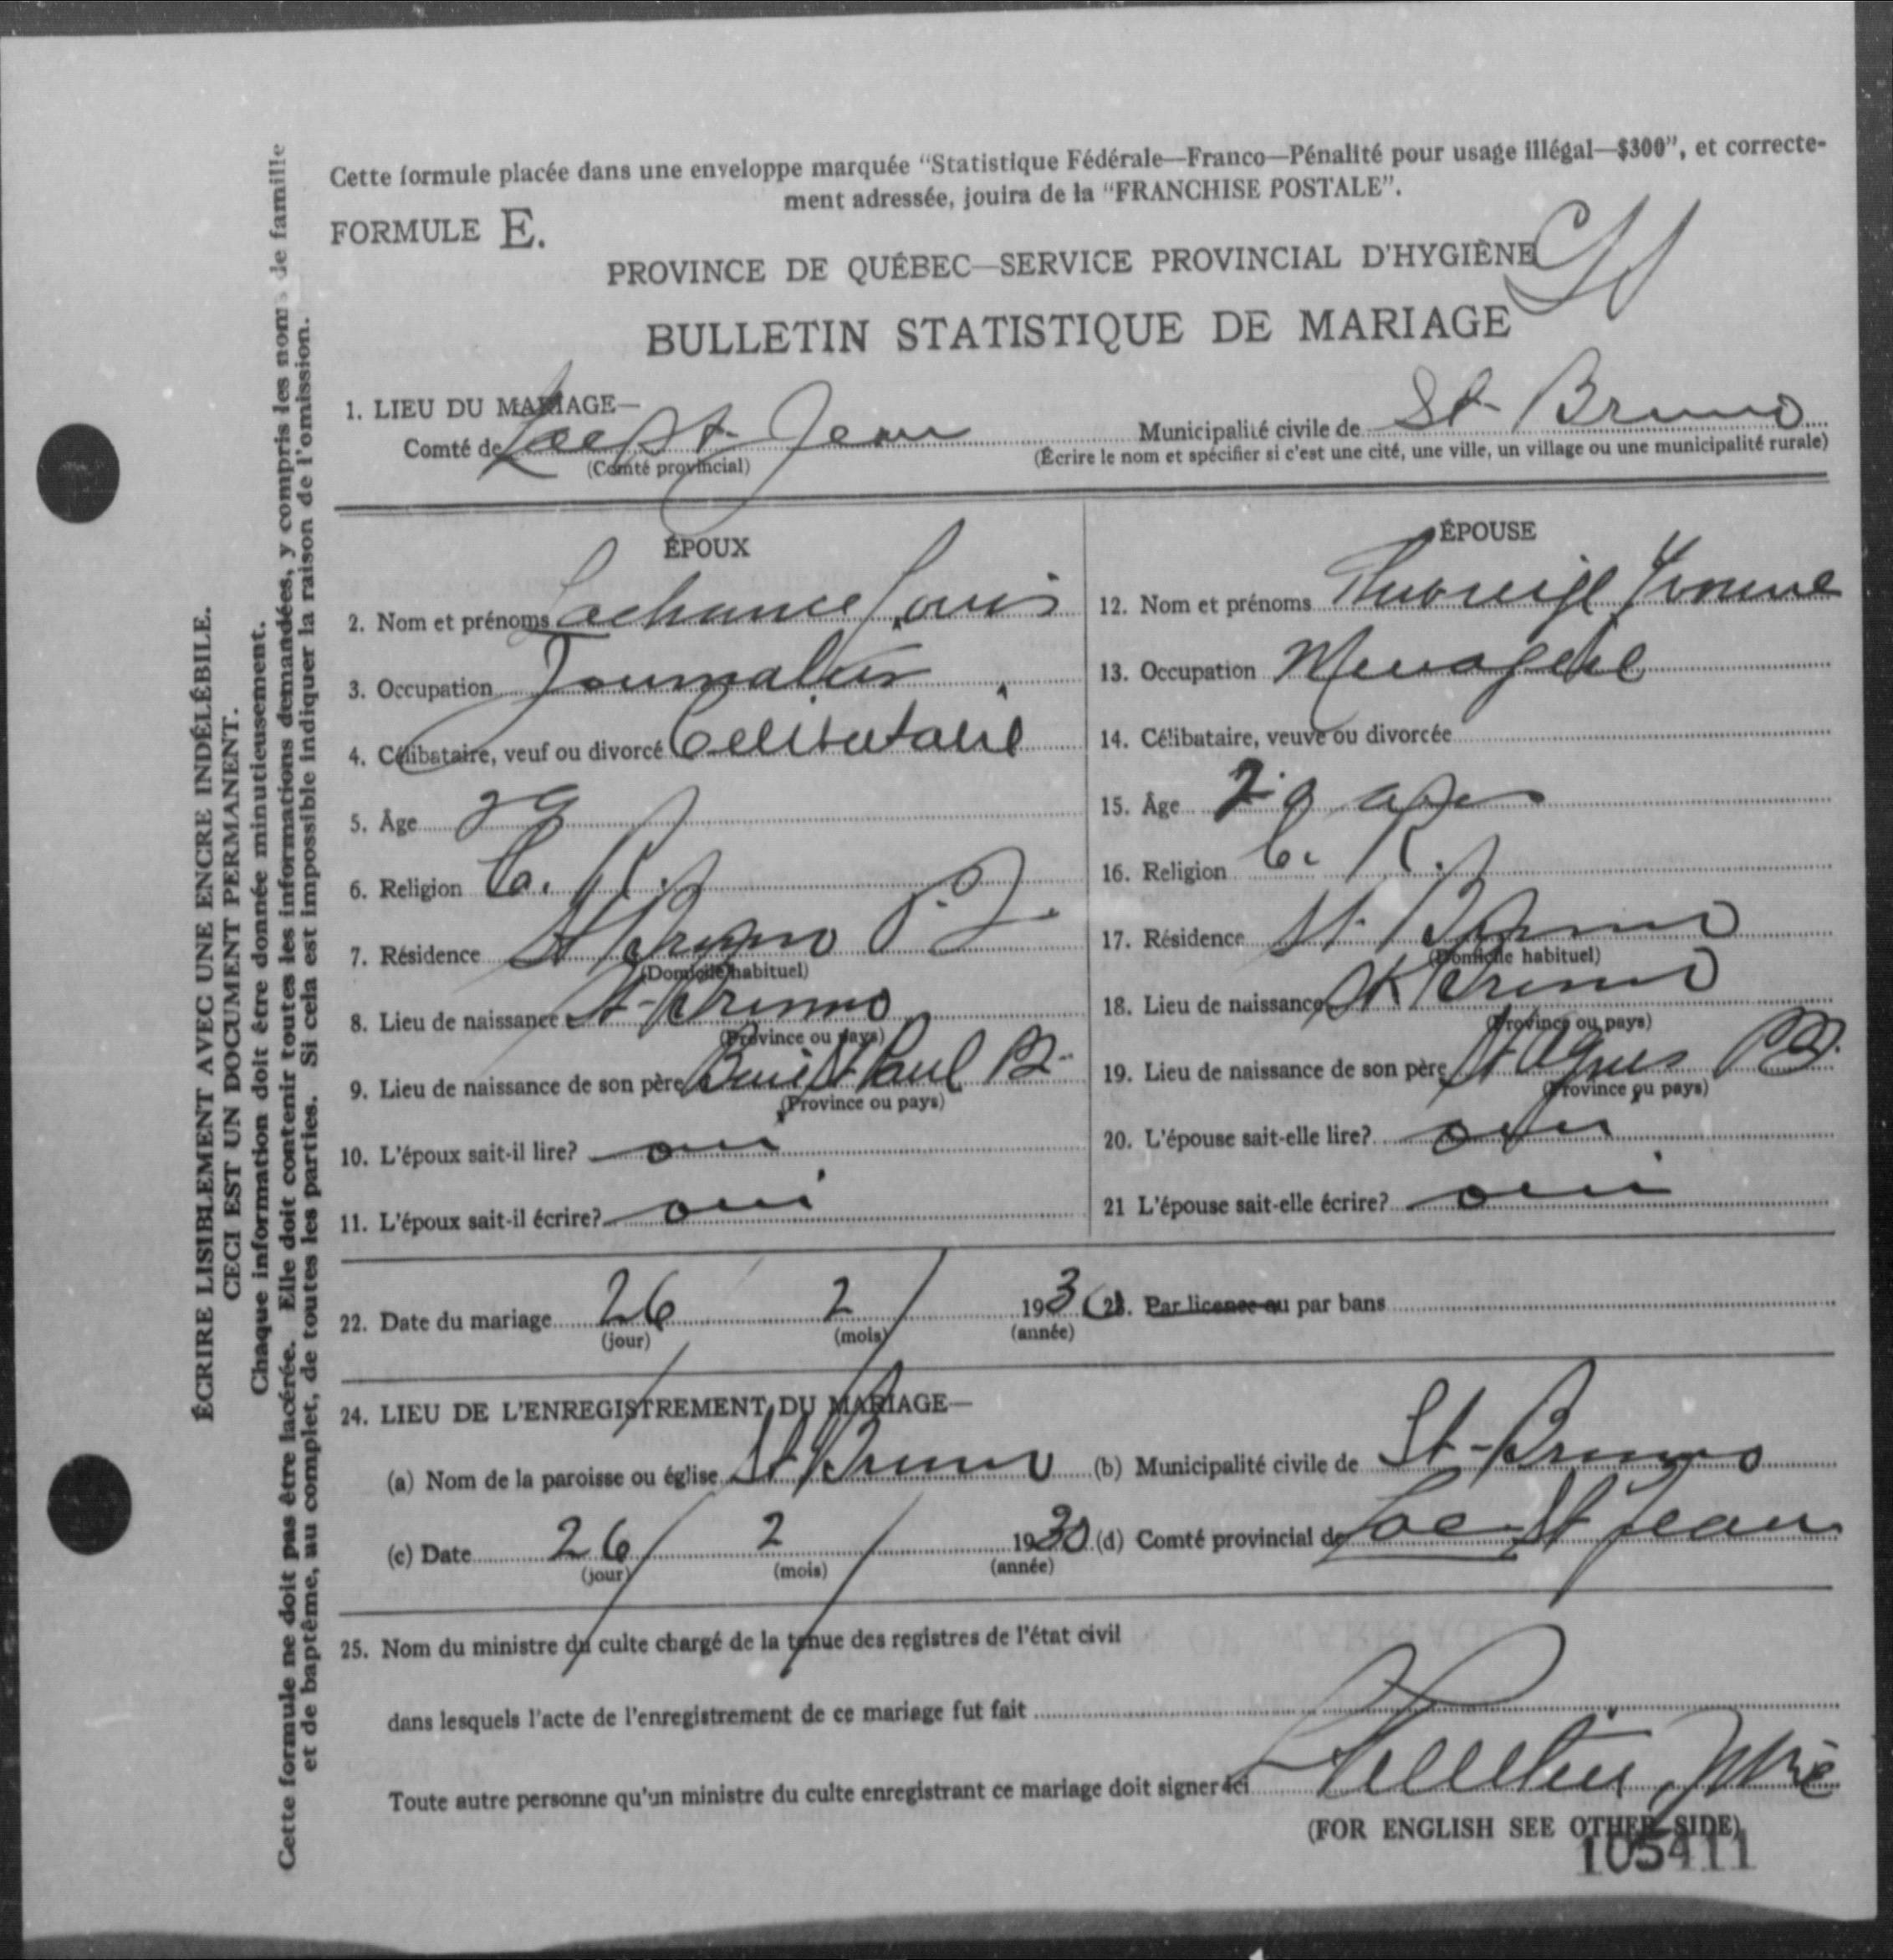 Cette formule placée dans une enveloppe marquée "Statistique Fédérale—Franco—Pénalité pour usage illégal—$300", et correcte-
ment adressée, jouira de la "FRANCHISE POSTALE".
FORMULE E.
PROVINCE DE QUÉBEC—SERVICE PROVINCIAL D'HYGIÈNE
BULLETIN STATISTIQUE DE MARIAGE
1. LIEU DU MARIAGE—
Comté de Lac St-Jean Municipalité civile de St-Bruno
(Comté provincial) (Écrire le nom et spécifier si c'est une cité, une ville, un village ou une municipalité rurale)
ÉPOUX
2. Nom et prénoms Lachance Louis
3. Occupation Journalier
4. Célibataire, veuf ou divorcé Celibataire
5. Âge 29
6. Religion C. R.
7. Résidence St Bruno P.Q.
(Domicile habituel)
8. Lieu de naissance St-Bruno
(Province ou pays)
9. Lieu de naissance de son père Baie St Paul
(Province ou pays)
10. L'époux sait-il lire? oui
11. L'époux sait-il écrire? oui
ÉPOUSE
12. Nom et prénoms Yvonne
13. Occupation Menagere
14. Célibataire, veuve ou divorcée
15. Âge 29 ans
16. Religion C. R.
17. Résidence St-Bruno
(Domicile habituel)
18. Lieu de naissance St Bruno
(Province ou pays)
19. Lieu de naissance de son père St Agnes
(Province ou pays)
20. L'épouse sait-elle lire? oui
21 L'épouse sait-elle écrire? oui
22. Date du mariage 26 2 1930 23. Par licence ou par bans
(jour) (mois) (année)
24. LIEU DE L'ENREGISTREMENT DU MARIAGE—
(a) Nom de la paroisse ou église St Bruno (b) Municipalité civile de St-Bruno
(c) Date 26 2 1930 (d) Comté provincial de Lac-St Jean
(jour) (mois) (année)
25. Nom du ministre du culte chargé de la tenue des registres de l'état civil
dans lesquels l'acte de l'enregistrement de ce mariage fut fait
Toute autre personne qu'un ministre du culte enregistrant ce mariage doit signer ici
(FOR ENGLISH SEE OTHER SIDE)
105411
ÉCRIRE LISIBLEMENT AVEC UNE ENCRE INDÉLÉBILE.
CECI EST UN DOCUMENT PERMANENT.
Chaque information doit être donnée minutieusement.
Cette formule ne doit pas être lacérée. Elle doit contenir toutes les informations demandées, y compris les noms de famille
et de baptême, au complet, de toutes les parties. Si cela est impossible indiquer la raison de l'omission.